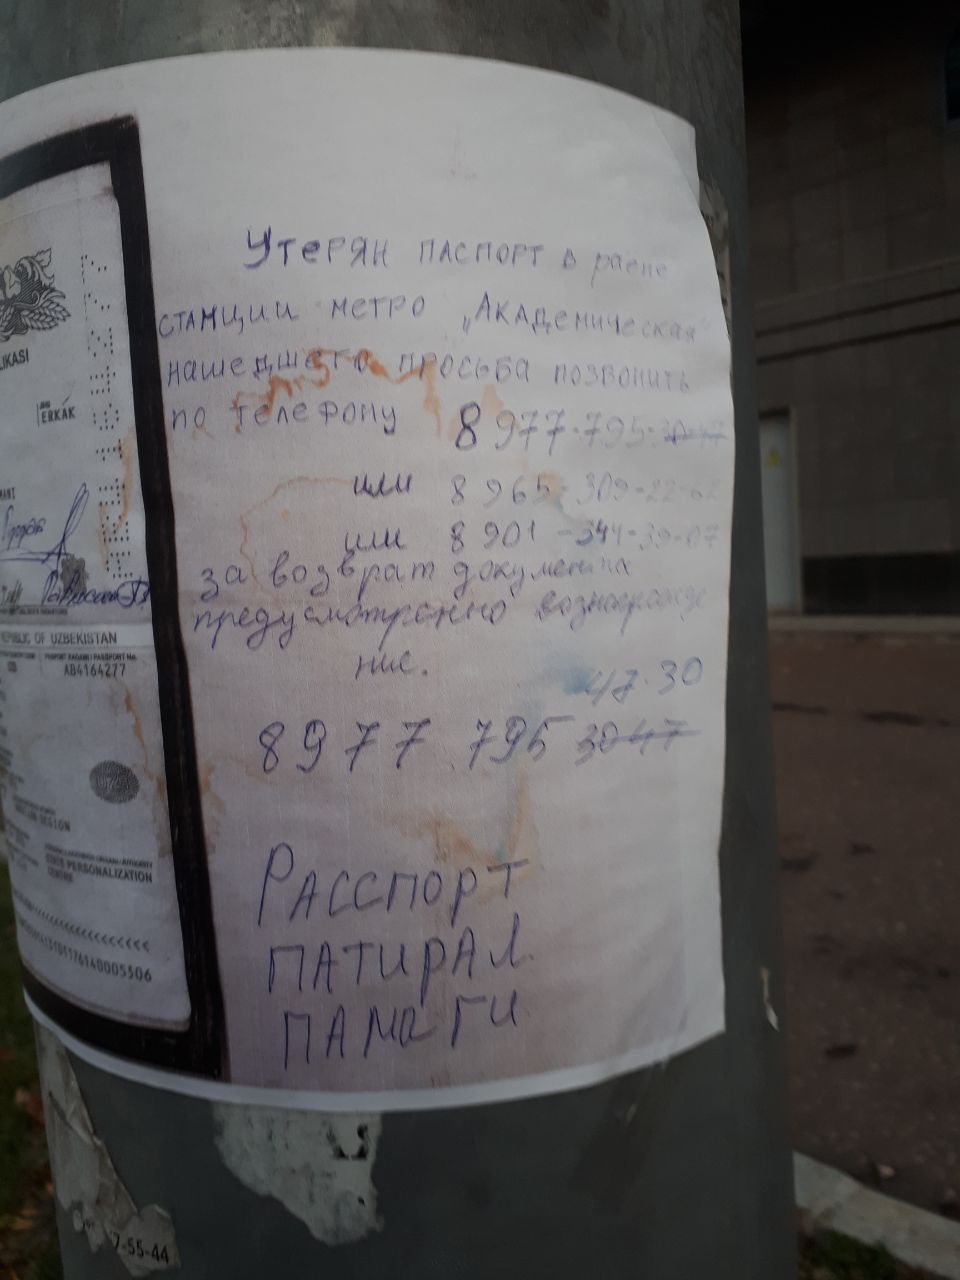 LIKASI
ERKAK
REPUBLIC OF UZBEKISTAN
AB4164277
UZB
REGION
STATE PERSONALIZATION
CENTRE
Утерян паспорт в раене
станции метро „Академическая"
нашедшего просьба позвонить
по телефону 8 977-795-30-47
или 8 965-309-22-62
или 8 901-344-39-07
за возврат документа
предусмотренно вознагражде
ние.
47.30
8977 795 3047
Расспорт
патирал
памаги
7-55-44